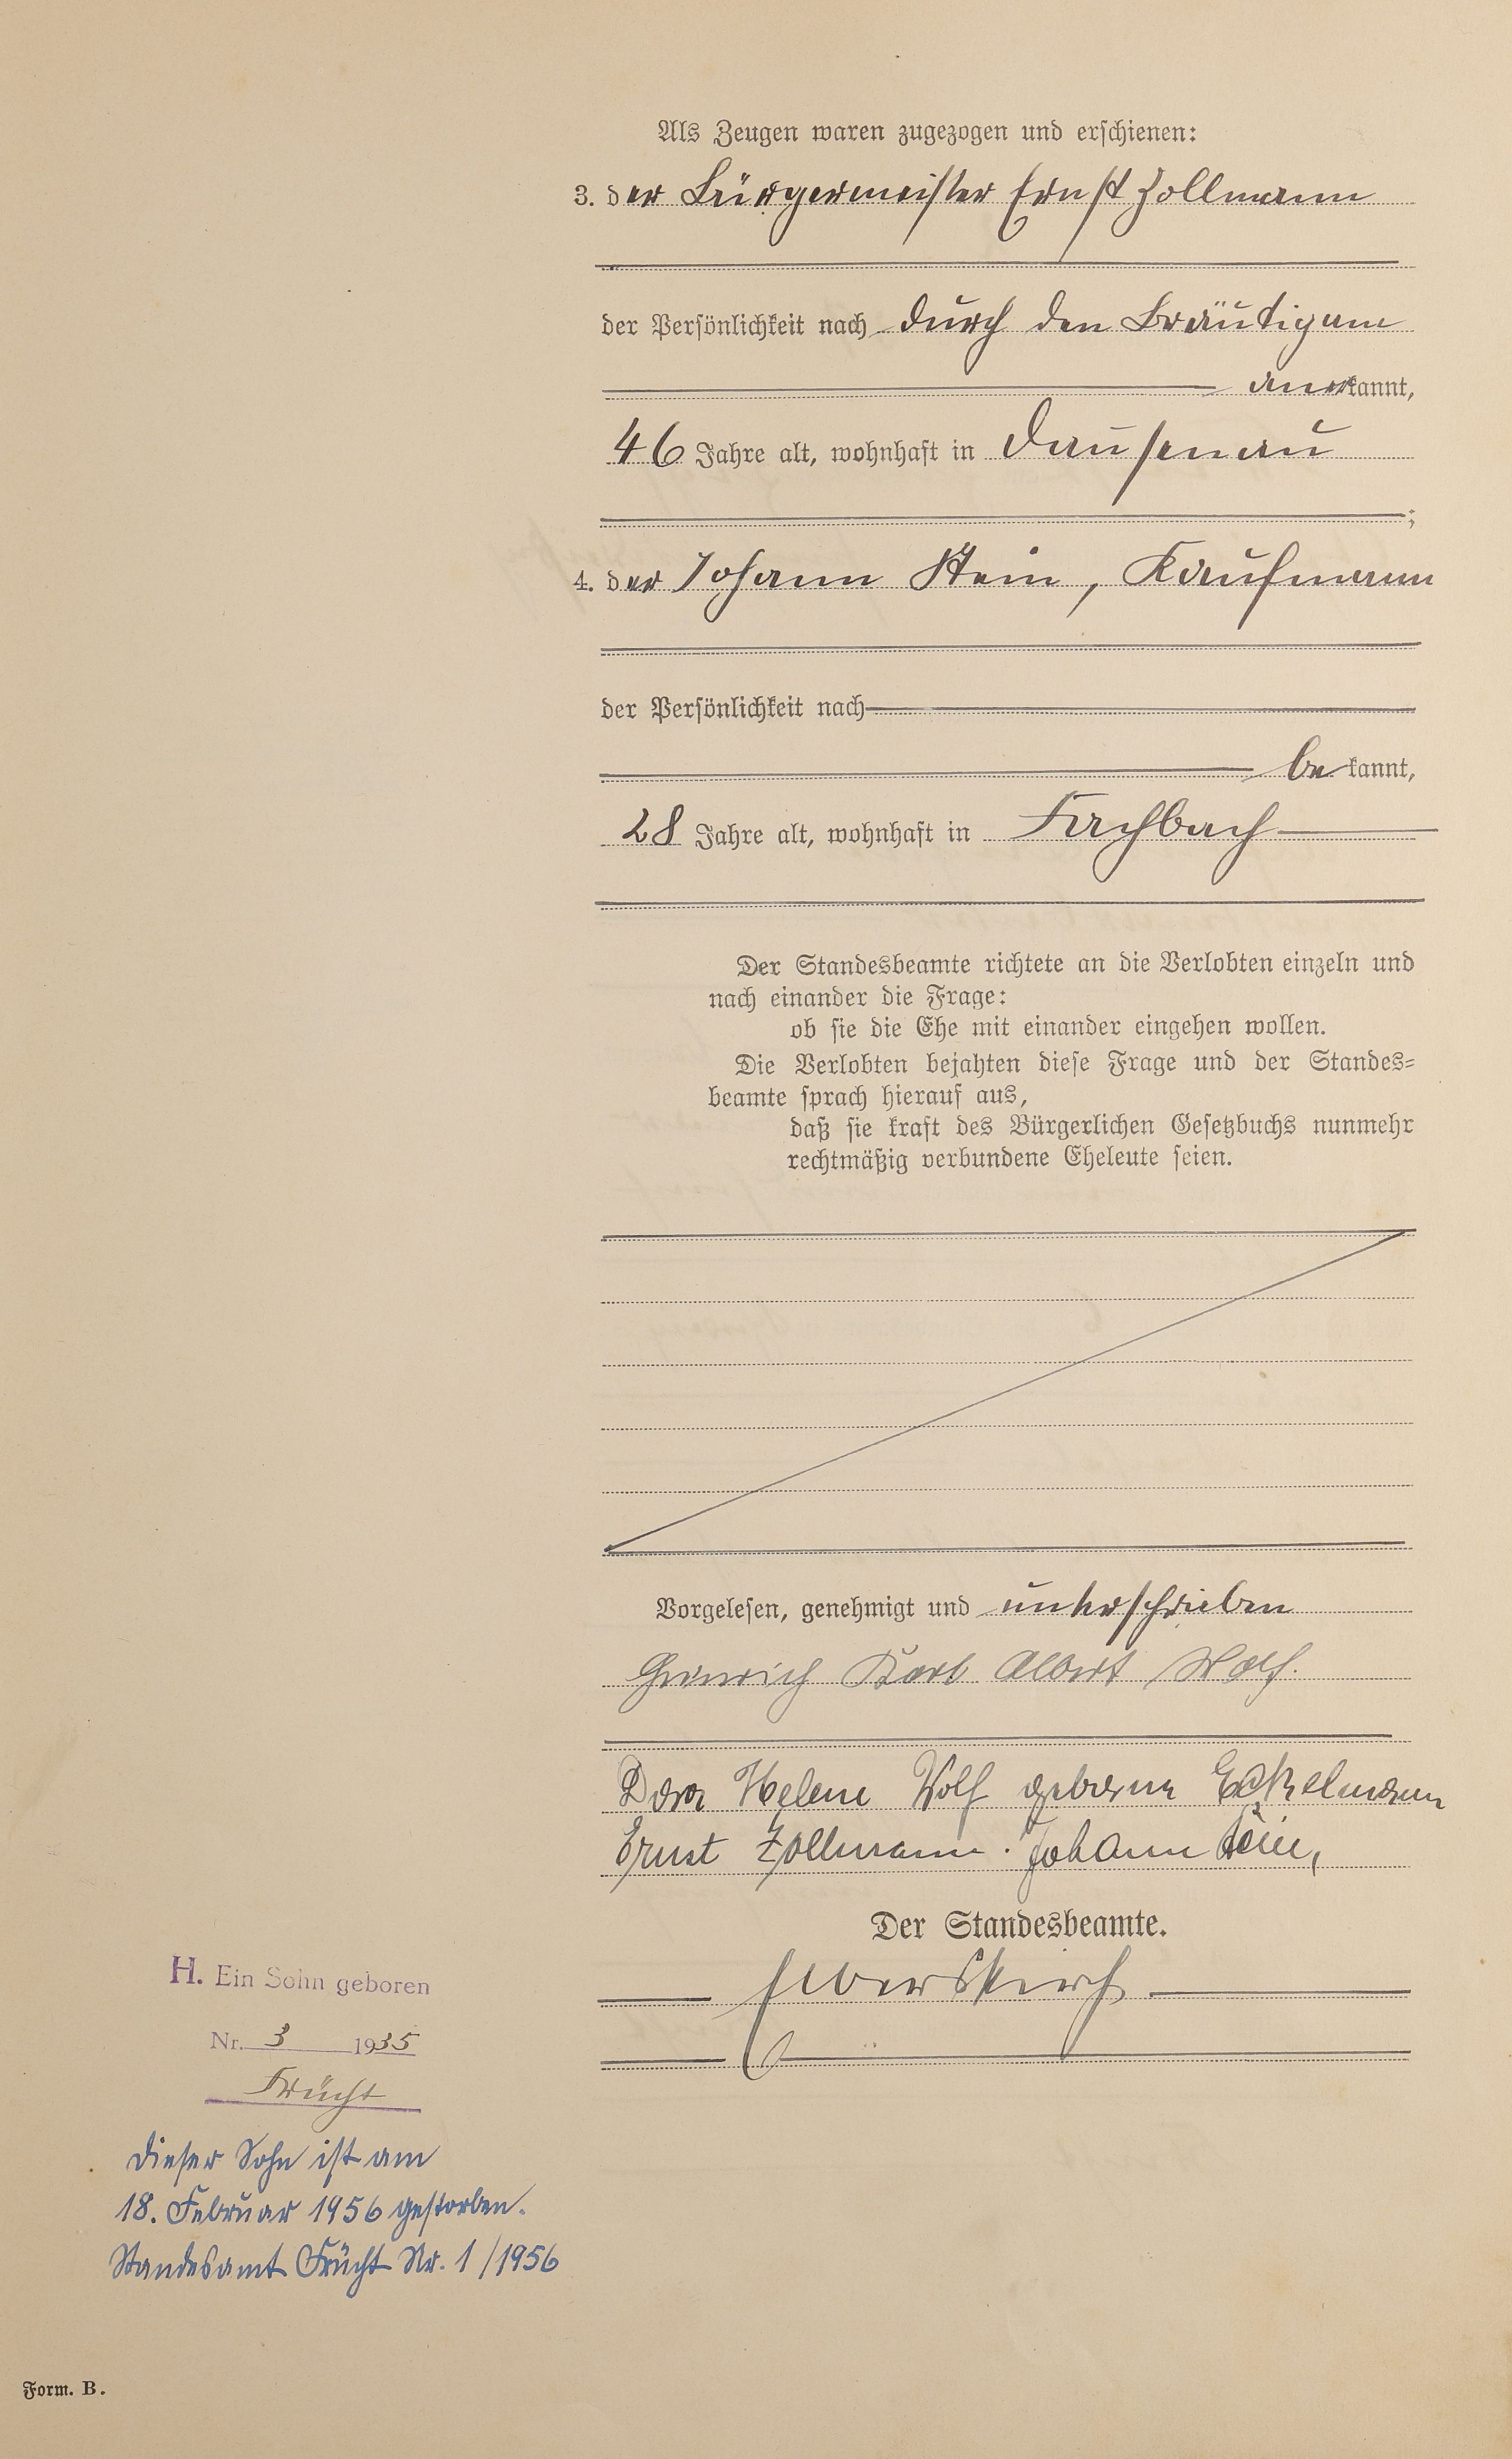 Als Zeugen waren zugezogen und erschienen:
3. der Bürgermeister Ernst Zollmann
der Persönlichkeit nach durch den Bräutigam
anerkannt,
46 Jahre alt, wohnhaft in Dausenau
;
4. der Johann Stein, Kaufmann
der Persönlichkeit nach
be kannt,
28 Jahre alt, wohnhaft in Fachbach
Der Standesbeamte richtete an die Verlobten einzeln und
nach einander die Frage:
ob sie die Ehe mit einander eingehen wollen.
Die Verlobten bejahten diese Frage und der Standes=
beamte sprach hierauf aus,
daß sie kraft des Bürgerlichen Gesetzbuchs nunmehr
rechtmäßig verbundene Eheleute seien.
Vorgelesen, genehmigt und unterschrieben
Heinrich Karl Albert Wolf.
Dora Helene Wolf geborene Eckelmann
Ernst Zollmann. Johann Stein,
Der Standesbeamte.
Elberskirch
H. Ein Sohn geboren
Nr. 3 1935
Frücht
Dieser Sohn ist am
18. Februar 1956 gestorben.
Standesamt Frücht Nr. 1/1956
Form. B.